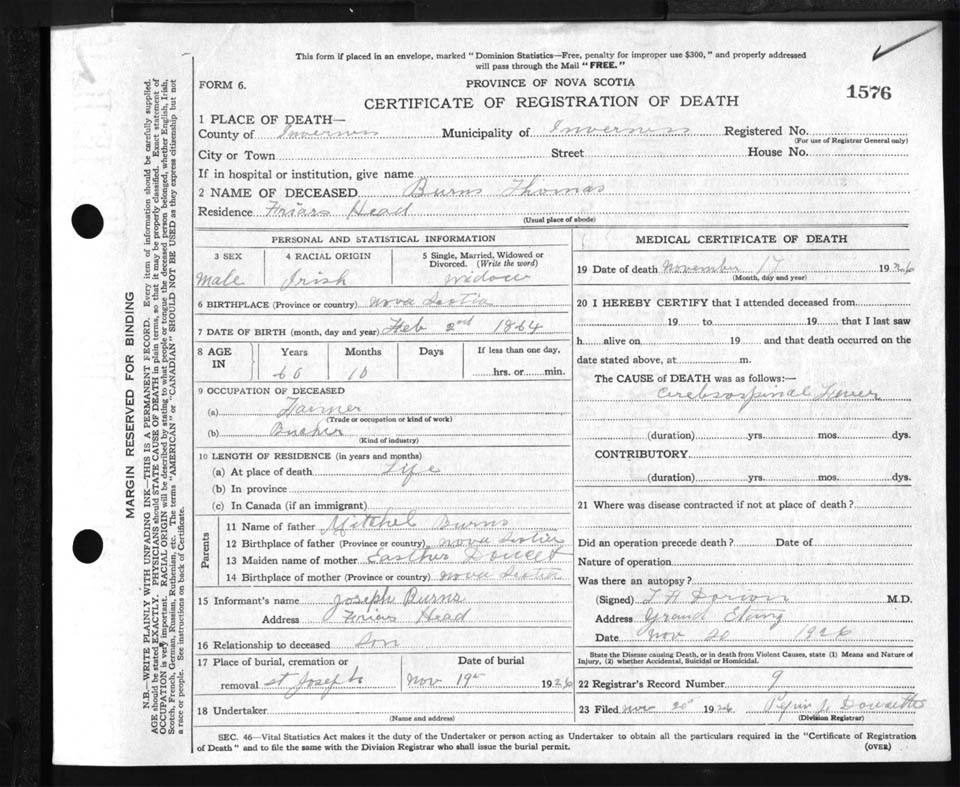 This form if placed in an envelope, marked "Dominion Statistics—Free, penalty for improper use $300," and properly addressed
will pass through the Mail "FREE."
FORM 6.
PROVINCE OF NOVA SCOTIA
1576
CERTIFICATE OF REGISTRATION OF DEATH
1 PLACE OF DEATH—
County of Inverness Municipality of Inverness Registered No.
(For use of Registrar General only)
City or Town Street House No.
If in hospital or institution, give name
2 NAME OF DECEASED Burns Thomas
Residence Friars Head
(Usual place of abode)
PERSONAL AND STATISTICAL INFORMATION
3 SEX 4 RACIAL ORIGIN 5 Single, Married, Widowed or
Divorced. (Write the word)
Male Irish widow
6 BIRTHPLACE (Province or country) Nova Scotia
7 DATE OF BIRTH (month, day and year) Feb 2nd 1864
8 AGE IN Years Months Days If less than one day,
60 10 hrs. or min.
9 OCCUPATION OF DECEASED
(a) Farmer
(Trade or occupation or kind of work)
(b)
(Kind of industry)
10 LENGTH OF RESIDENCE (in years and months)
(a) At place of death Life
(b) In province
(c) In Canada (if an immigrant)
Parents
11 Name of father Mitchel Burns
12 Birthplace of father (Province or country) Nova Scotia
13 Maiden name of mother Easther Doucet
14 Birthplace of mother (Province or country) Nova Scotia
15 Informant's name Joseph Burns
Address Friars Head
16 Relationship to deceased Son
17 Place of burial, cremation or Date of burial
removal St Joseph Nov 19th 1926
18 Undertaker
(Name and address)
MEDICAL CERTIFICATE OF DEATH
19 Date of death November 17 1926
(Month, day and year)
20 I HEREBY CERTIFY that I attended deceased from
19 to 19 that I last saw
h alive on 19 and that death occurred on the
date stated above, at m.
The CAUSE of DEATH was as follows:—
Cerebrospinal Fever
(duration) yrs. mos. dys.
CONTRIBUTORY
(duration) yrs. mos. dys.
21 Where was disease contracted if not at place of death?
Did an operation precede death? Date of
Nature of operation
Was there an autopsy?
(Signed) M.D.
Address Grand Etang
Date Nov 20 1926
State the Disease causing Death, or in death from Violent Causes, state (1) Means and Nature of
Injury, (2) whether Accidental, Suicidal or Homicidal.
22 Registrar's Record Number 9
23 Filed Nov 20 1926
(Division Registrar)
SEC. 46—Vital Statistics Act makes it the duty of the Undertaker or person acting as Undertaker to obtain all the particulars required in the "Certificate of Registration
of Death" and to file the same with the Division Registrar who shall issue the burial permit.
(OVER)
MARGIN RESERVED FOR BINDING
N.B.—WRITE PLAINLY WITH UNFADING INK—THIS IS A PERMANENT RECORD. Every item of information should be carefully supplied.
AGE should be stated EXACTLY. PHYSICIANS should STATE CAUSE OF DEATH in plain terms, so that it may be properly classified. Exact statement of
OCCUPATION is very important. RACIAL ORIGIN will be described by stating to what people or tongue the deceased person belonged, whether English, Irish,
Scotch, French, German, Russian, Ruthenian, etc. The terms "AMERICAN" or "CANADIAN" SHOULD NOT BE USED as they express citizenship but not
a race or people. See instructions on back of Certificate.